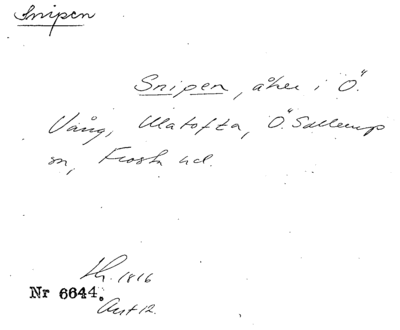 Snipen
Snipen, åker i Ö.
Vång, Ulatofta, Ö. Sallerup
sn, Frosta hd.
1816
Nr 6644.
Akt 12.